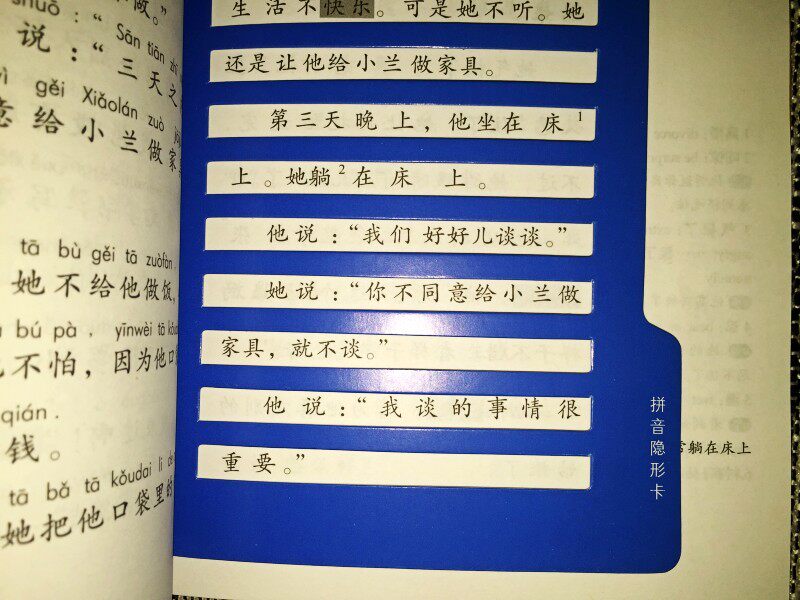 做。”
shuō : “ Sān tiān zhī
说：“三天之
gěi Xiǎolán zuò
意给小兰做家
tā bù gěi tā zuòfàn.
她不给他做饭，
bú pà. yīnwèi tā kǒu
不怕，因为他口
qián.
钱。
tā bǎ tā kǒudai li de
她把他口袋里的
生活不快乐。可是她不听。她
还是让他给小兰做家具。
第三天晚上，他坐在床1
上。她躺2在床上。
他说：“我们好好儿谈谈。”
她说：“你不同意给小兰做
家具，就不谈。”
他说：“我谈的事情很
重要。”
拼音隐形卡
躺在床上